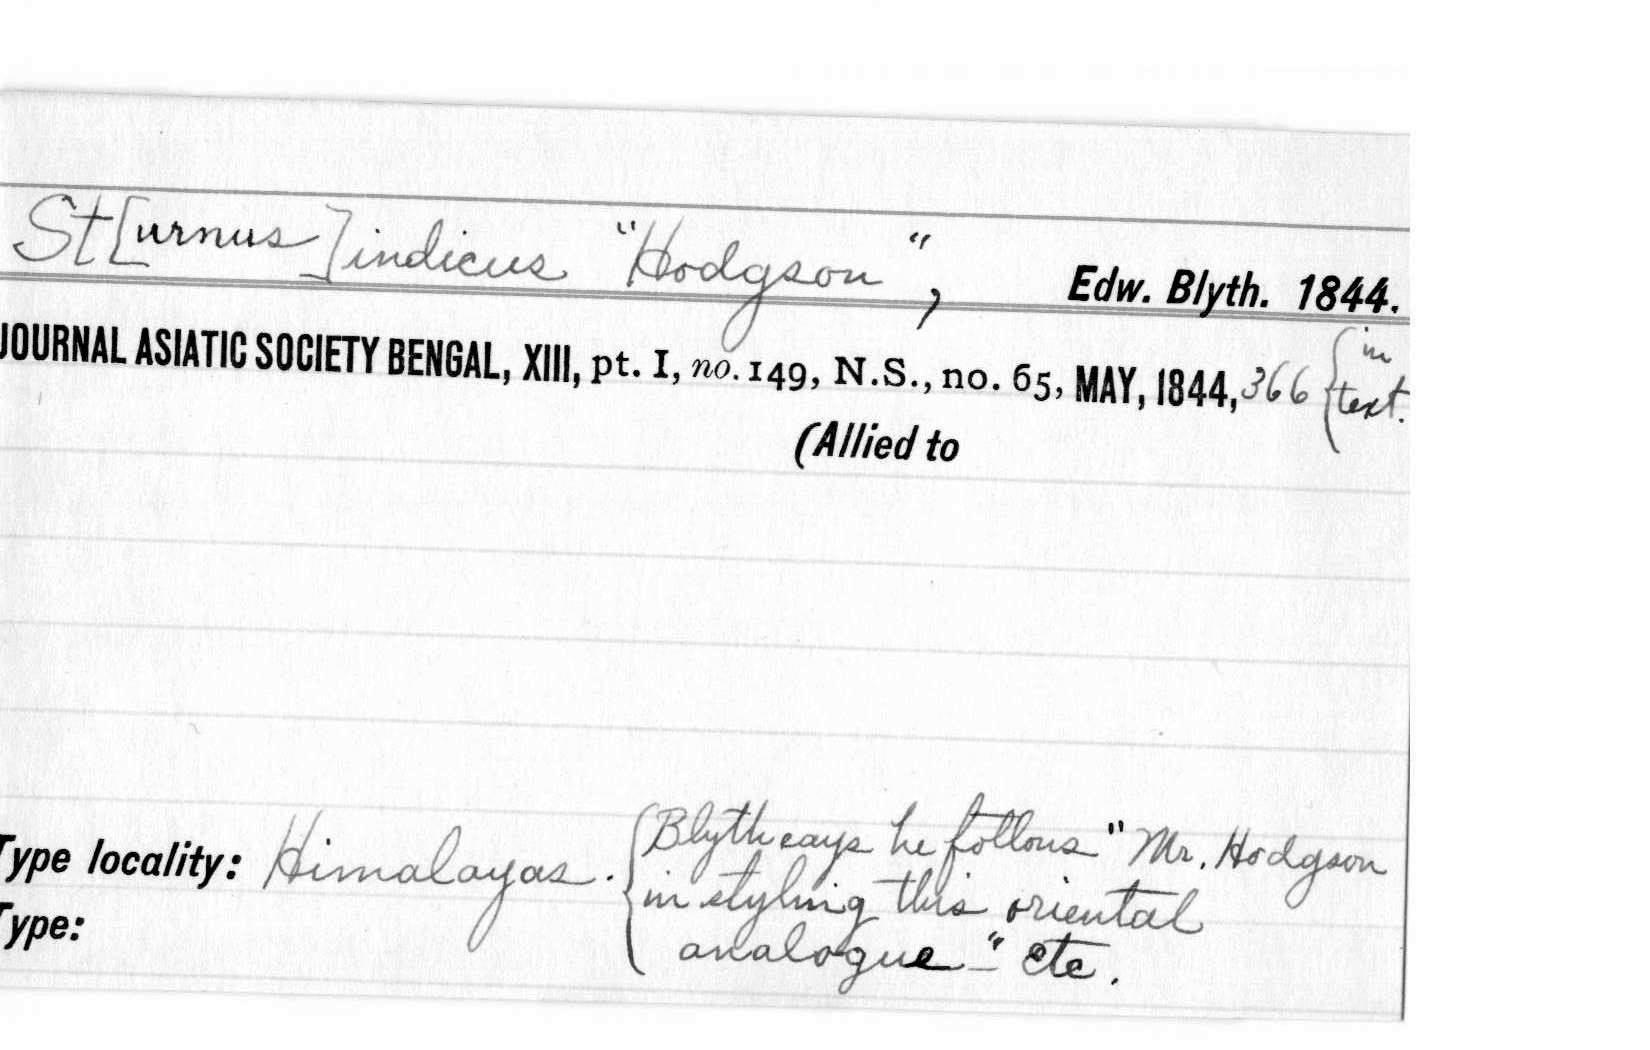 St[urnus] indicus "Hodgson", Edw. Blyth. 1844.
JOURNAL ASIATIC SOCIETY BENGAL, XIII, pt. I, no. 149, N.S., no. 65, MAY, 1844, 366 {in text.
(Allied to
Type locality: Himalayas. {Blyth says he follows "Mr. Hodgson
in styling this oriental
Type: analogue—" etc.